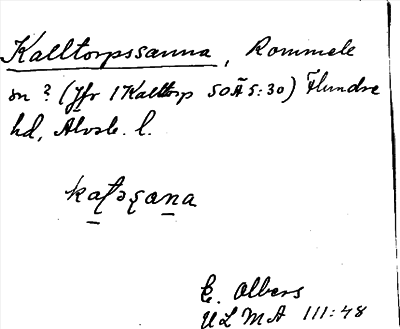 Kalltorpssanna, Rommele
sn? (Jfr 1 Kalltorp SOÄ 5:30) Flundre
hd, Älvsb. l.
E. Olbers
ULMA 111:48